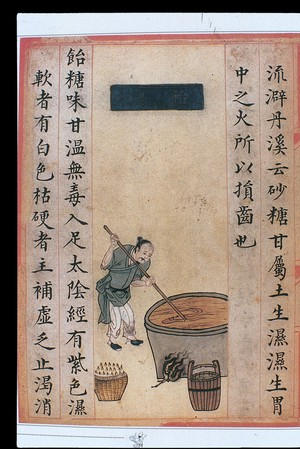 流澼丹溪云砂糖甘屬土生濕濕生胃
中之火所以損齒也
飴糖味甘溫無毒入足太陰經有紫色濕
軟者有白色枯硬者主補虛乏止渴消